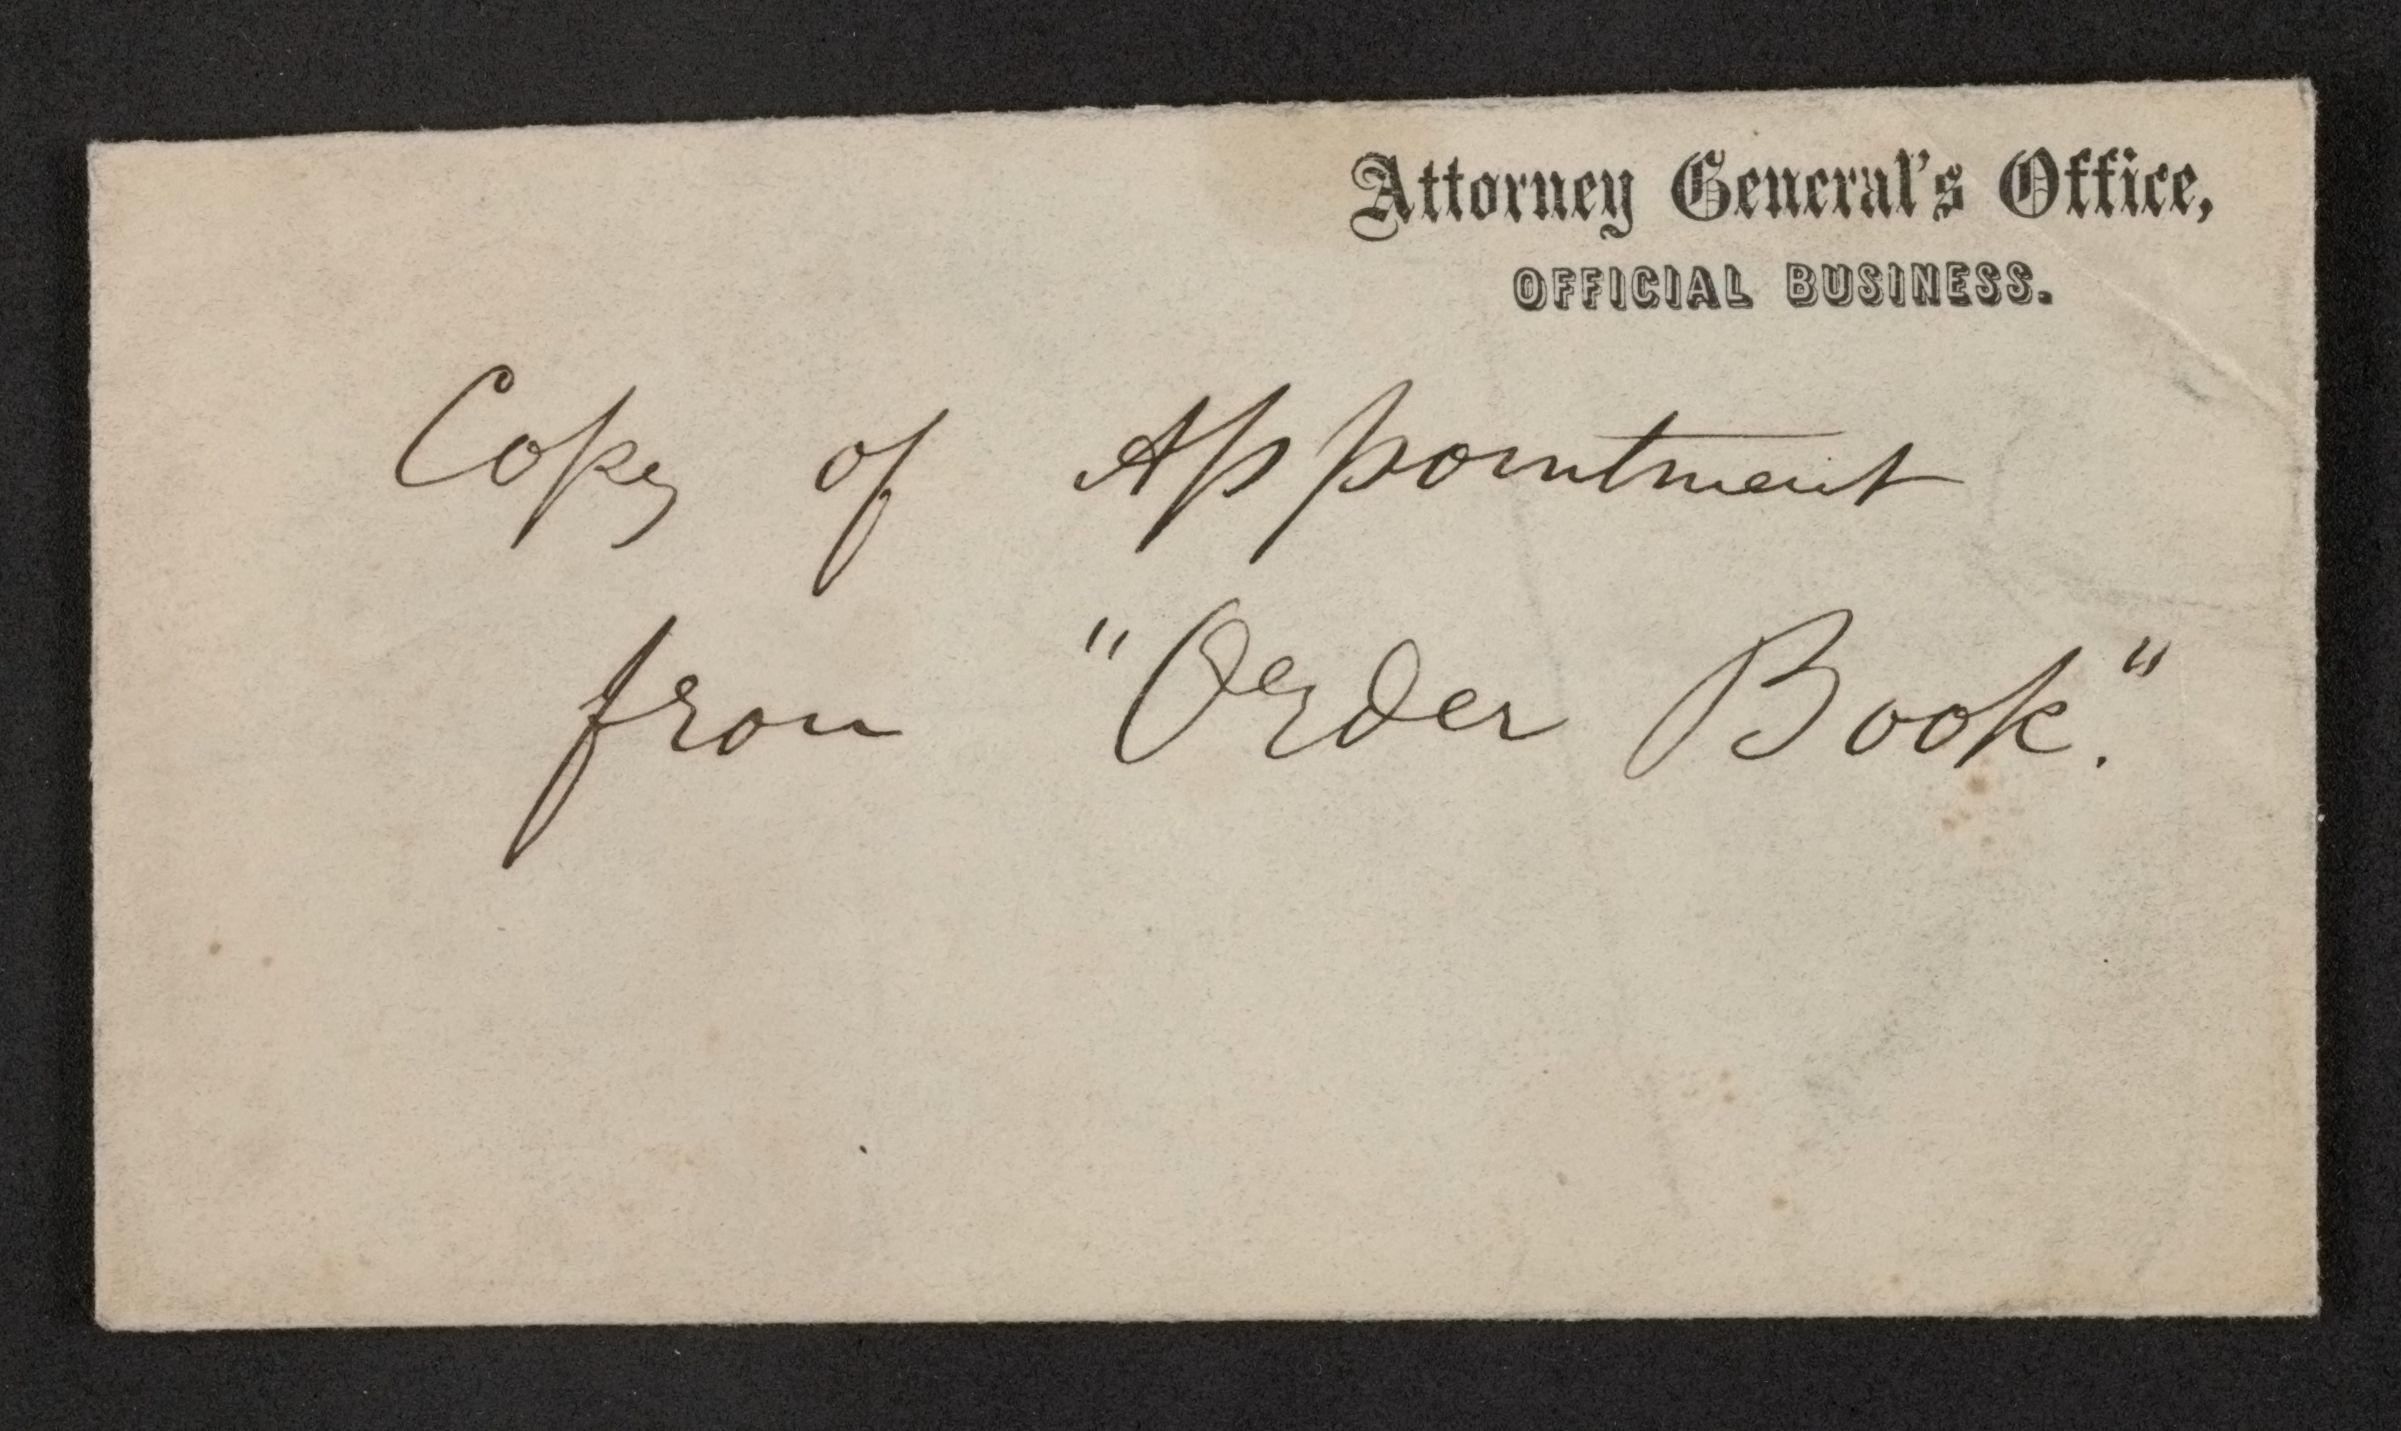 Attorney General's Office,
OFFICIAL BUSINESS.
Copy of Appointment
from "Order Book."